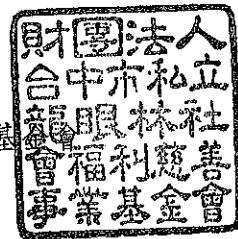 財團法人
台中市私立
龍眼林社
會福利慈善
事業基金會
基金會